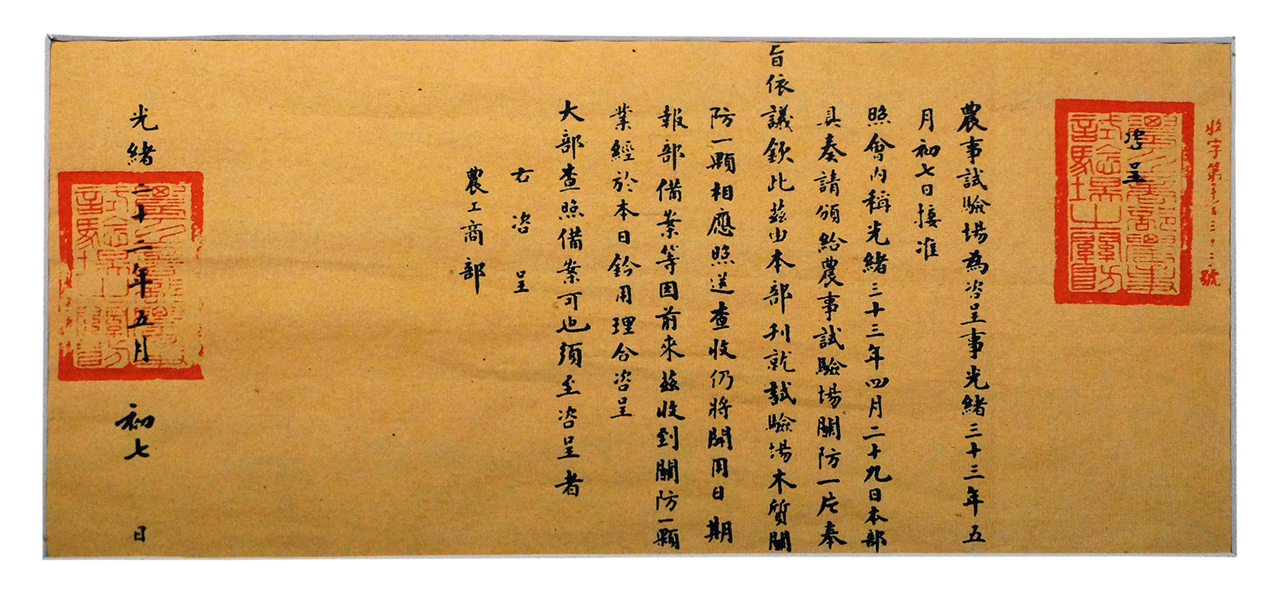 咨呈
農事試驗場為咨呈事光緒三十三年五
月初七日接准
照會內稱光緒三十三年四月二十九日本部
具奏請頒給農事試驗場關防一片奉
旨依議欽此茲由本部刊就試驗場木質關
防一顆相應照送查收仍將開用日期
報部備案等因前來茲收到關防一顆
業經於本日鈐用理合咨呈
大部查照備案可也須至咨呈者
右咨呈
農工商部
光緒三十三年五月初七日